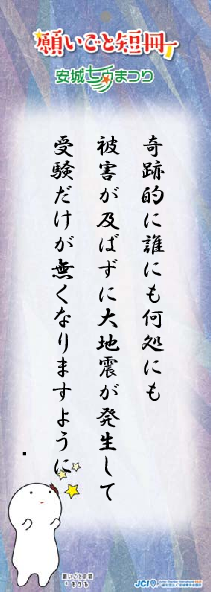 願いごと短冊
安城七夕まつり
奇跡的に誰にも何処にも
被害が及ばずに大地震が発生して
受験だけが無くなりますように
JCI